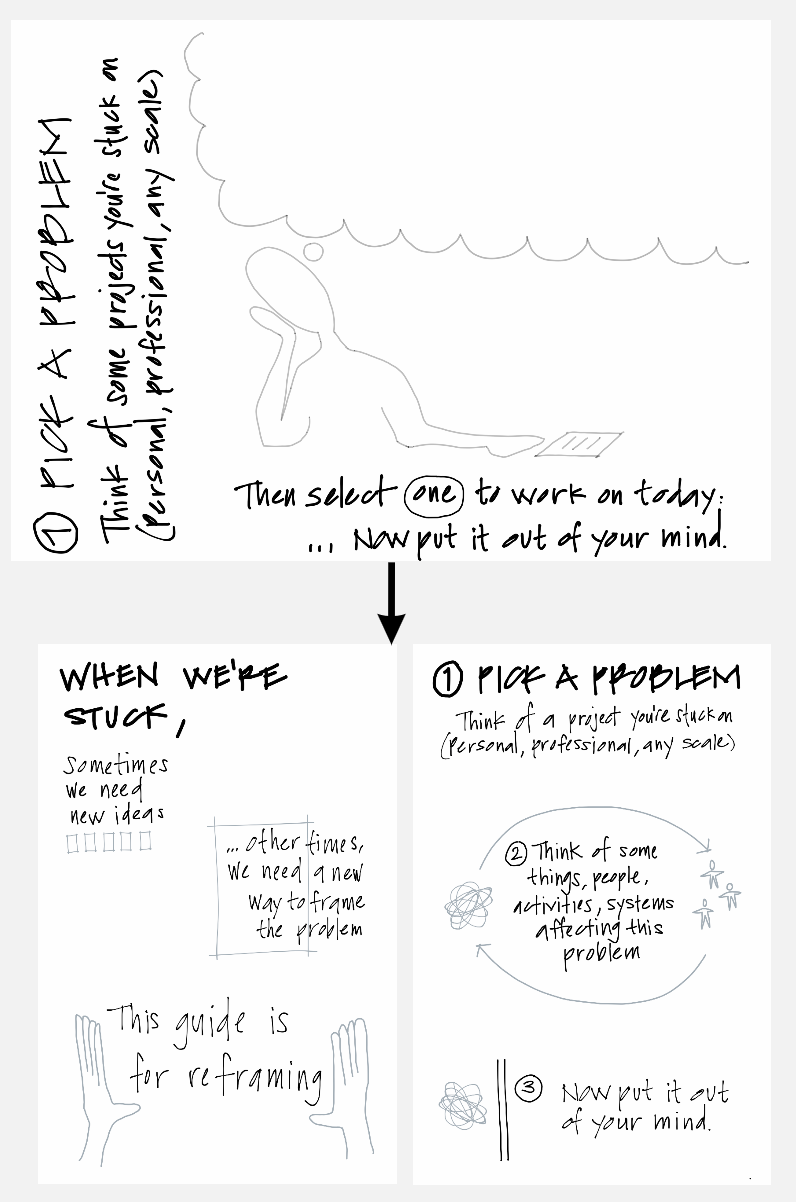 ① PICK A PROBLEM
Think of some projects you're stuck on
(personal, professional, any scale)
Then select one to work on today:
... Now put it out of your mind.
WHEN WE'RE
STUCK,
Sometimes
we need
new ideas
... other times,
we need a new
way to frame
the problem
This guide is
for reframing
① PICK A PROBLEM
Think of a project you're stuck on
(personal, professional, any scale)
② Think of some
things, people,
activities, systems
affecting this
problem
③ Now put it out
of your mind.